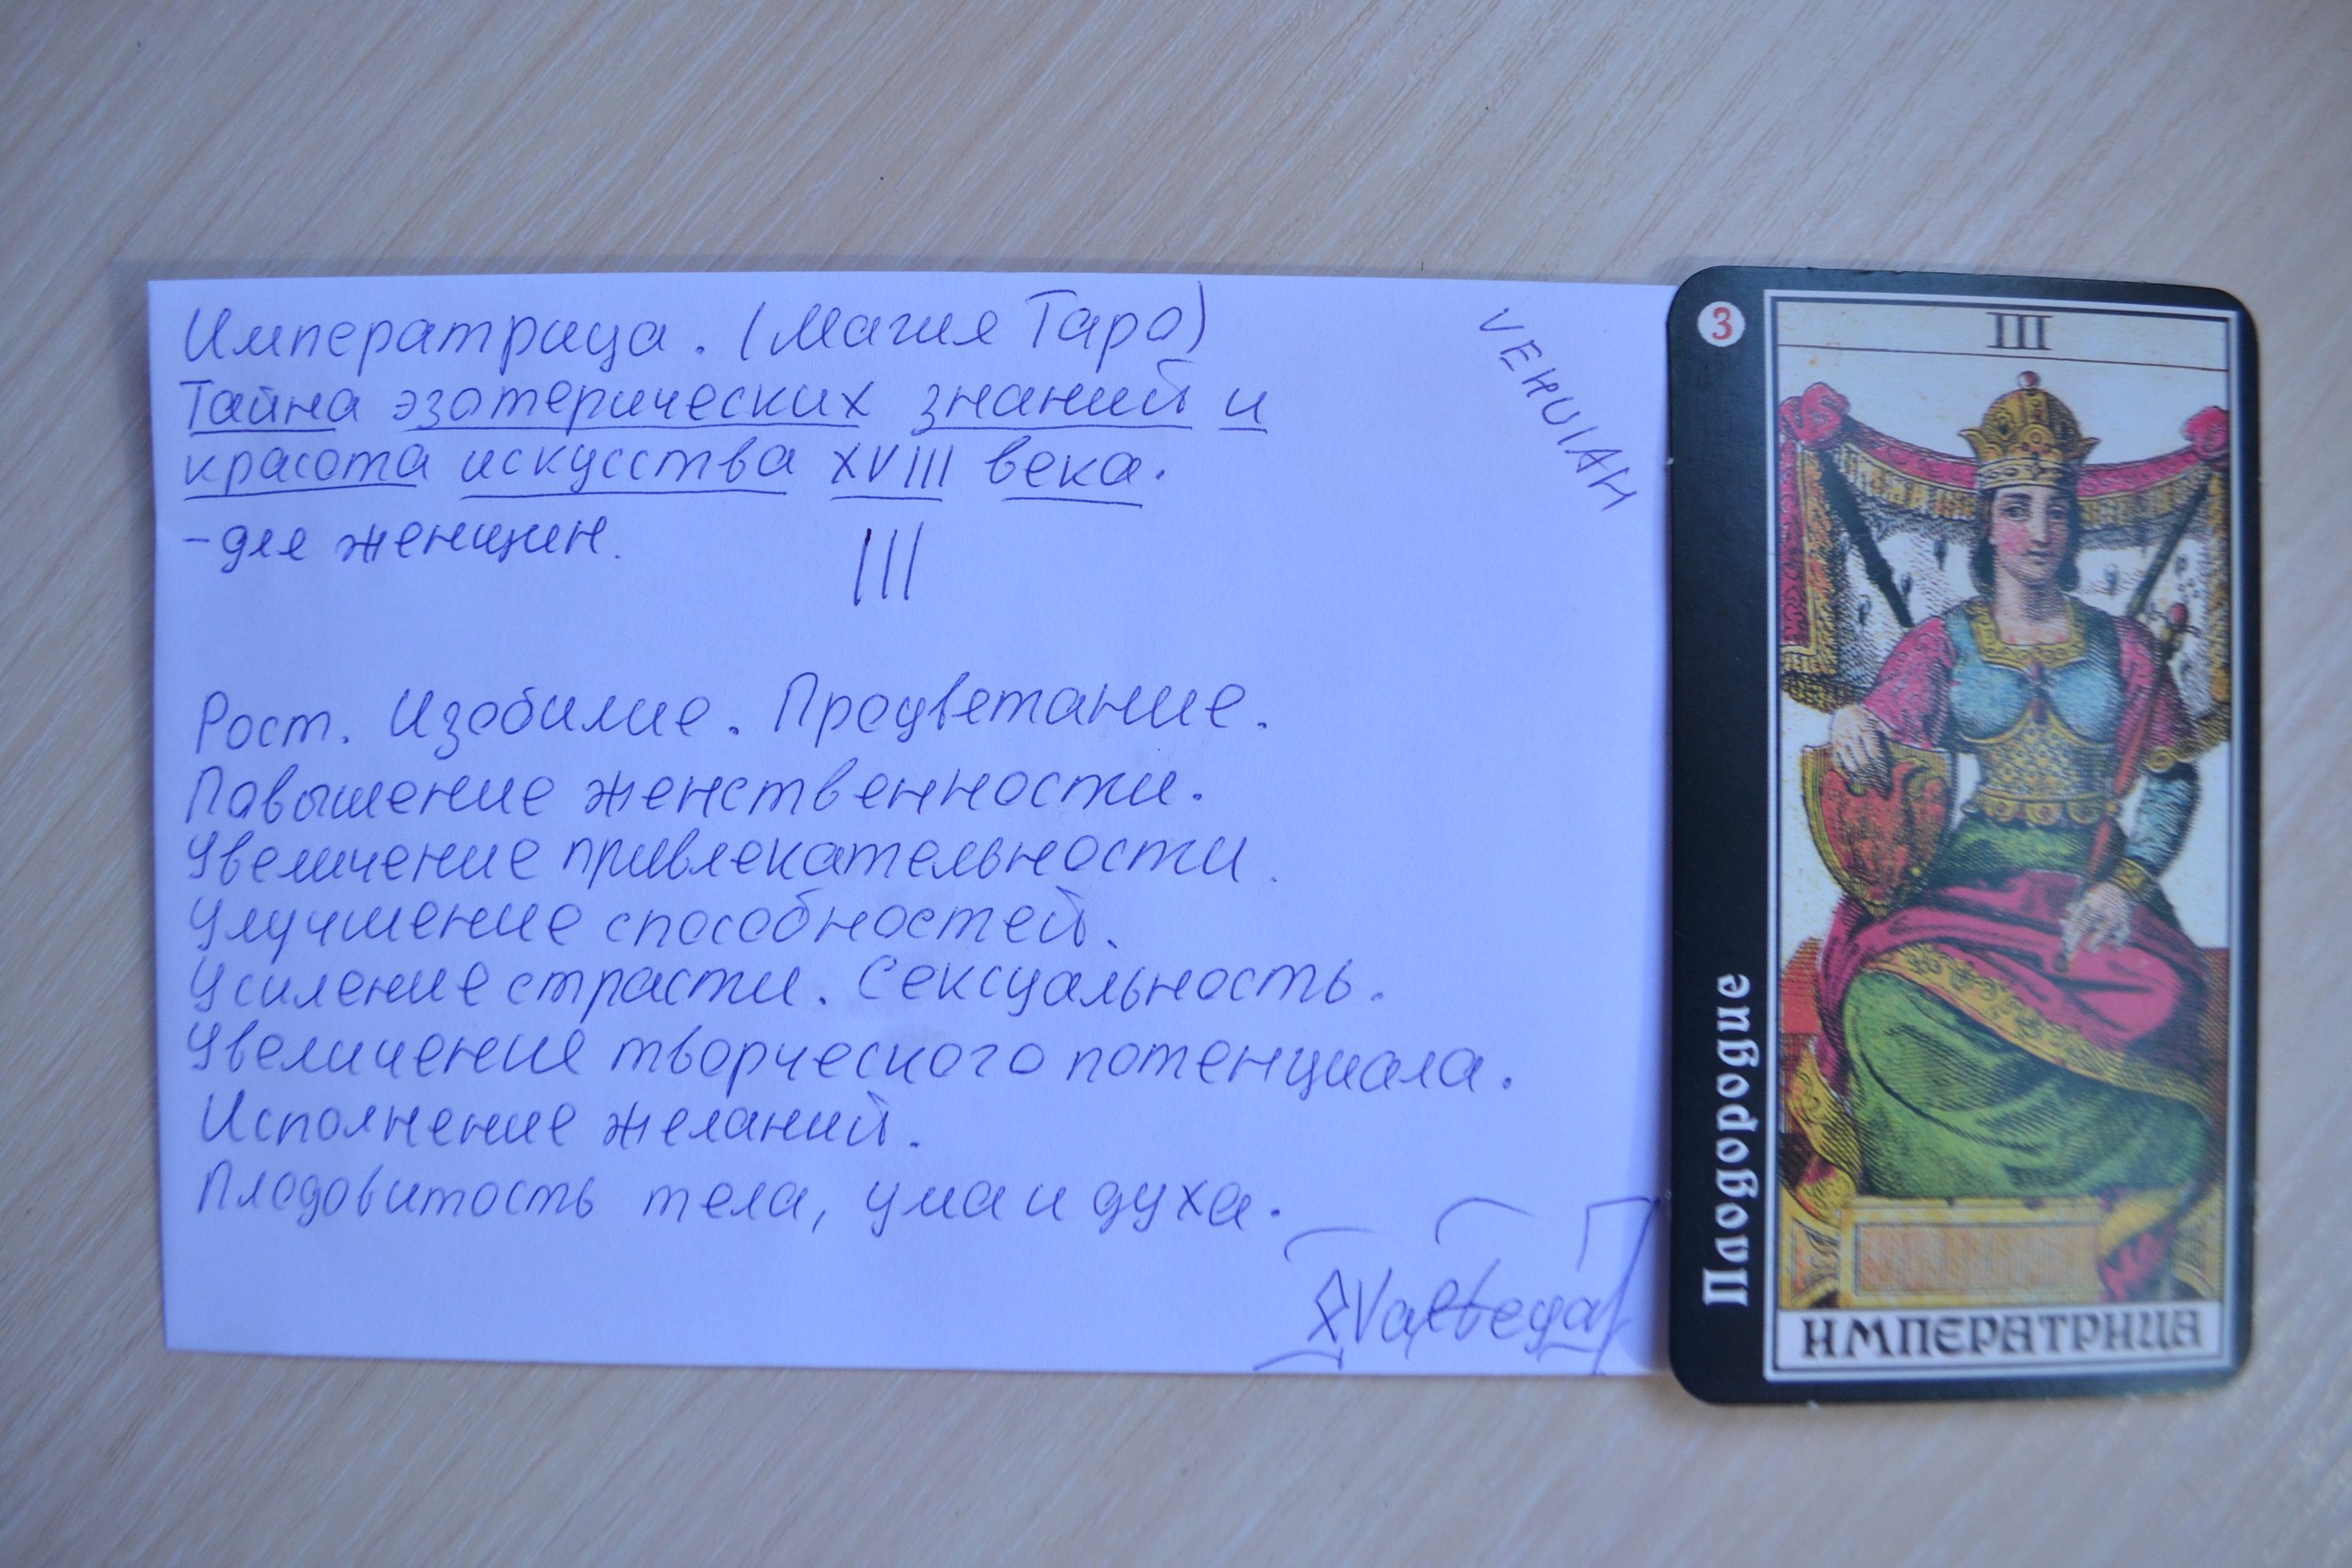 Императрица. (Магия Таро)
Тайна эзотерических знаний и
красота искусства XVIII века.
- для женщин.
III
Рост. Изобилие. Процветание.
Повышение женственности.
Увеличение привлекательности.
Улучшение способностей.
Усиление страсти. Сексуальность.
Увеличение творческого потенциала.
Исполнение желаний.
Плодовитость тела, ума и духа.
VEHUIAH
3
III
Плодородие
ИМПЕРАТРИЦА